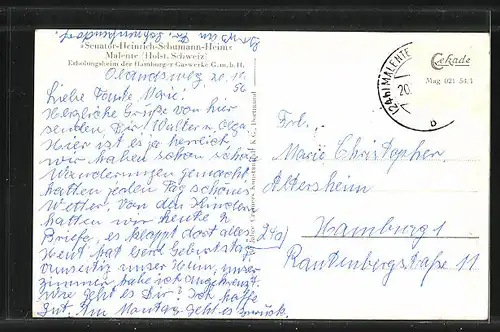 »Senator-Heinrich-Schumann-Heim«
Malente (Holst. Schweiz)
Erholungsheim der Hamburger Gaswerke G.m.b.H.
Liebe Tante Marie.
Herzliche Grüße von hier
senden Dir Walter u. Olga.
Hier ist es ja herrlich,
wir haben schon schöne
Wanderungen gemacht,
hatten jeden Tag schönes
Wetter. Von den Kindern
hatten wir heute 2
Briefe, es klappt dort alles.
Heut hat Gerd Geburtstag,
umseitig unser Heim, unser
Zimmer habe ich angekreuzt.
Wie geht es Dir? Ich hoffe
gut. Am Montag geht es zurück.
(24b) MALENTE
20.
b
Cekade
Frl.
Marie Christopher
Altersheim
24a) Hamburg 1
Rautenbergstraße 11